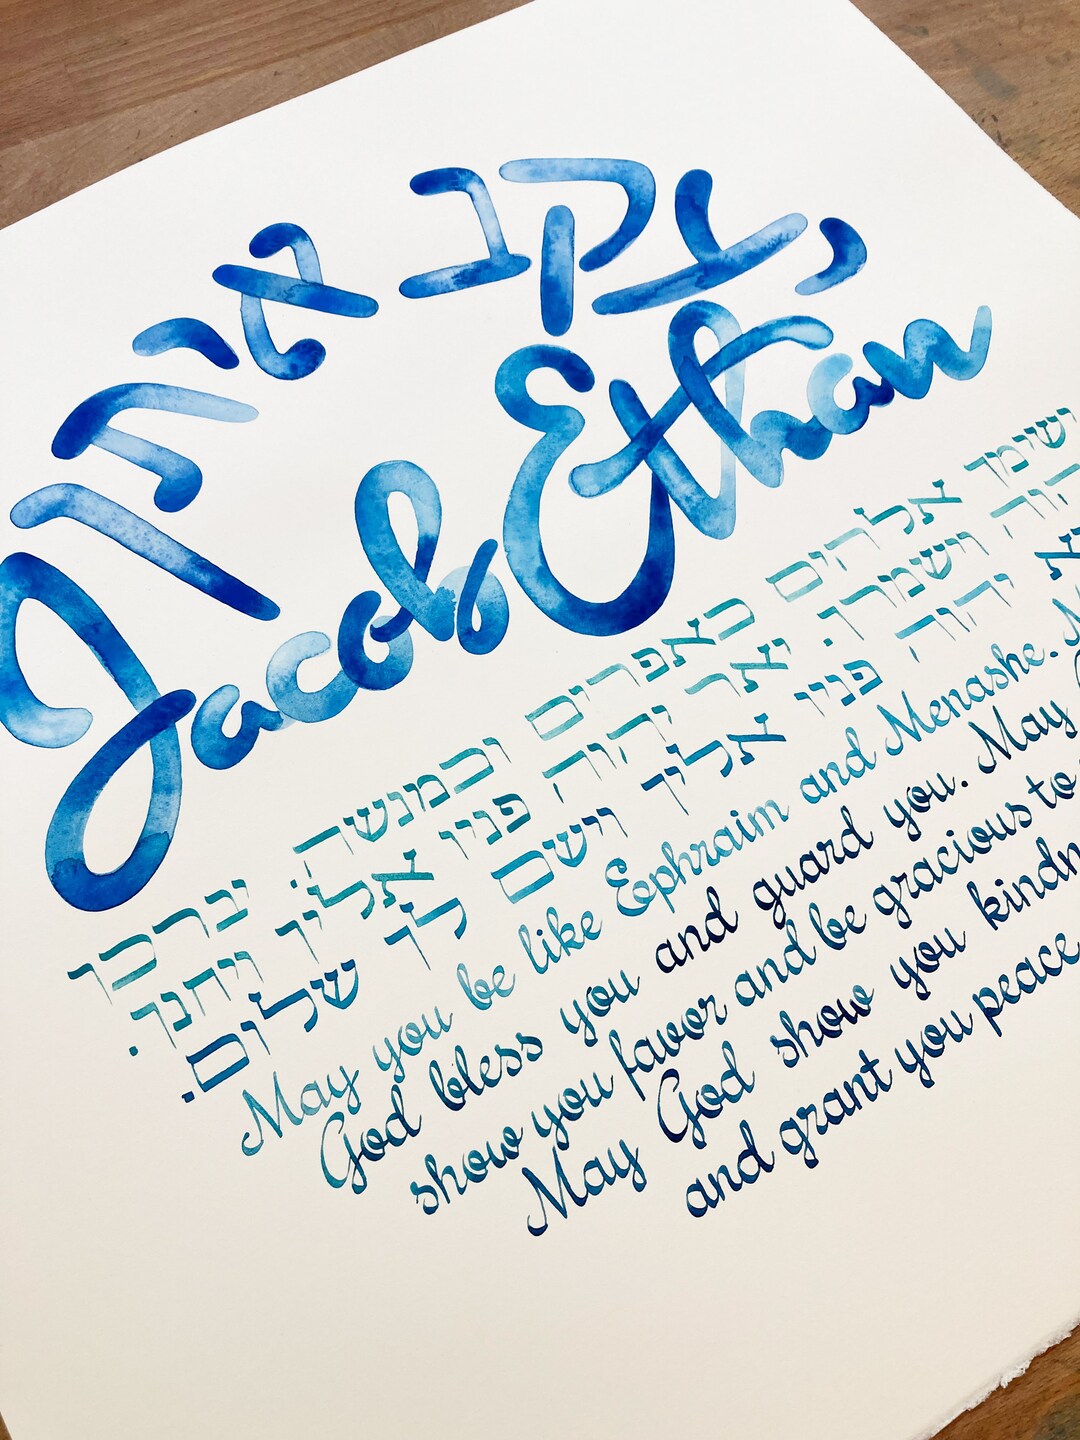 יעקב איתן
Jacob Ethan
ישימך אלהים כאפרים וכמנשה. יברכך
הוה וישמרך. יאר יהוה פניו אליך ויחנך.
א יהוה פניו אליך וישם לך שלום.
May you be like Ephraim and Menashe. M
God bless you and guard you. May
show you favor and be gracious to
May God show you kindn
and grant you peace